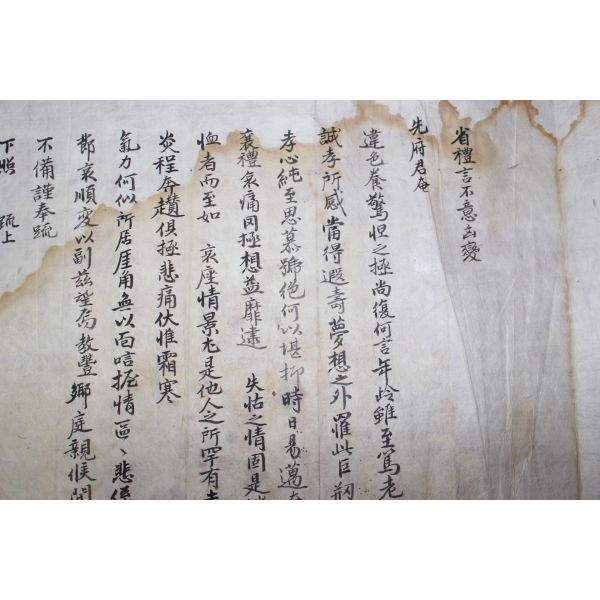 省禮言不意凶變
先府君奄
違色養驚怛之極尚復何言年齡雖至篤老
誠孝所感當得遐壽夢想之外罹此巨刱
孝心純至思慕號絶何以堪抑時日易邁
襄禮哀痛罔極想益靡逮 失怙之情固是
恤者而至如 哀座情景尤是他人之所罕有
炎程奔趲俱極悲痛伏惟霜寒
氣力何似所居厓角無以面唁握情區〻悲係
節哀順變以副玆望 教豐鄉庭親候間
不備謹奉疏
下照 疏上